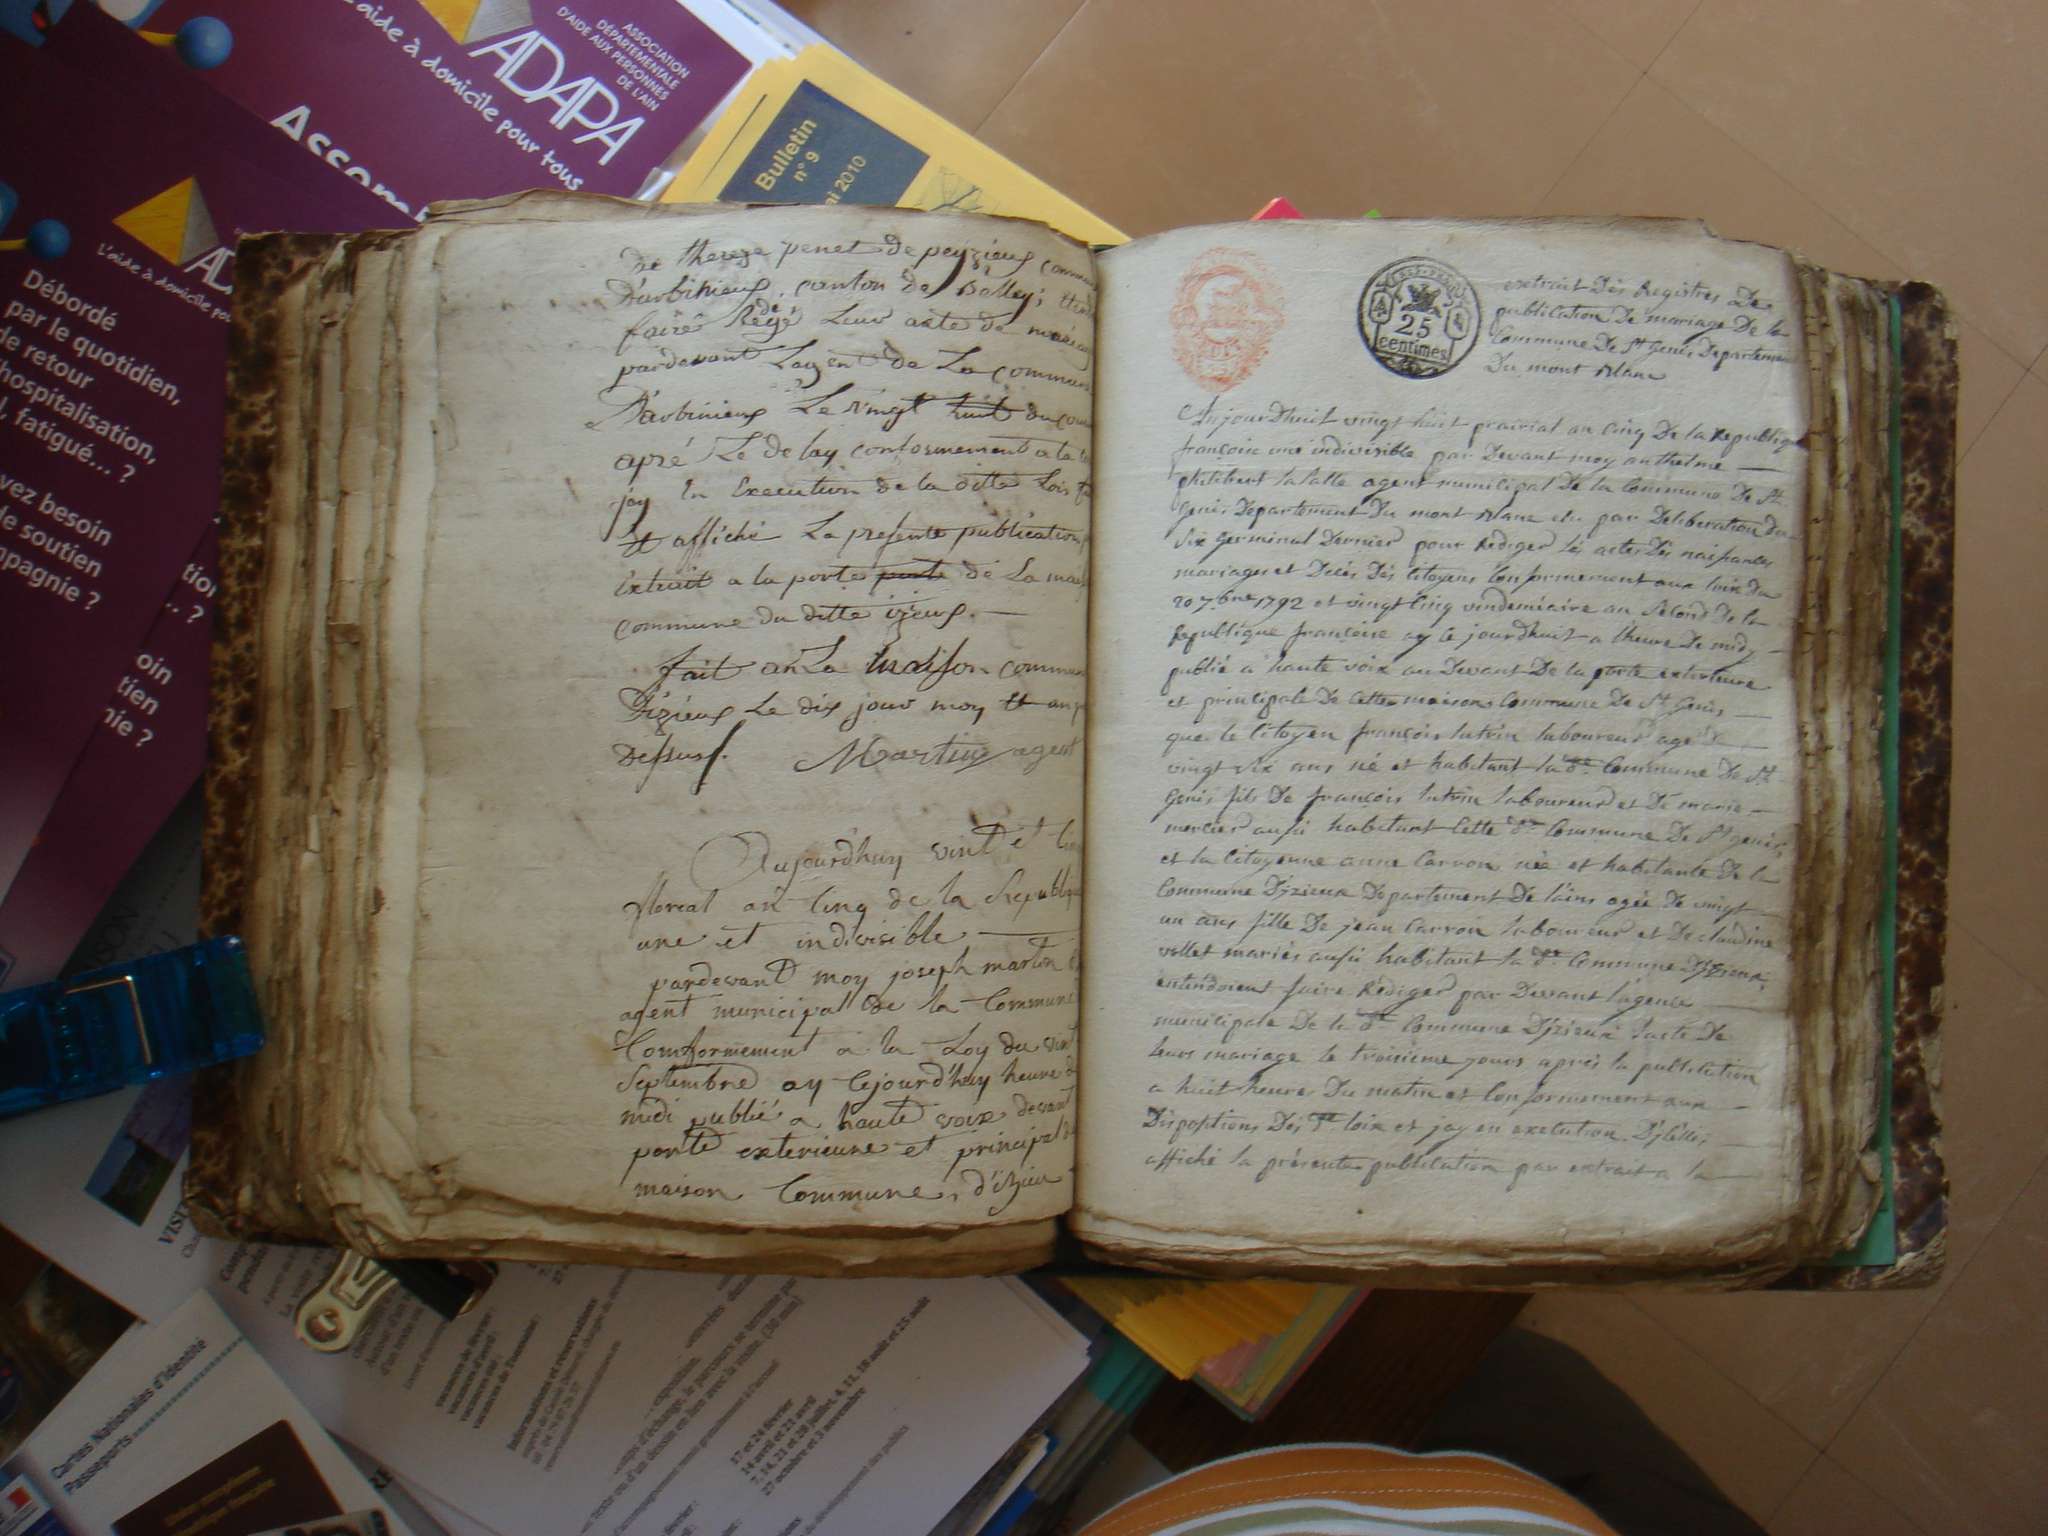 L'aide à domicile pour tous
ADAPA
ASSOCIATION
DÉPARTEMENTALE
D'AIDE AUX PERSONNES
DE L'AIN
Assem
Bulletin
n° 9
mai 2010
Débordé
par le quotidien,
de retour
hospitalisation,
fatigué... ?
vez besoin
de soutien
mpagnie ?
de thereze penet de peyzieux
D'arbinieux, canton de Belley,
faire Rége de Leur acte de
pardevant Lagent de La commune
D'arbinieux Le vingt huit du
apré Le delay conformement a la
jay En Execution de la ditte Lois
Et affiché La presente publication
Extrait a la porte porte de La
commune du ditte izieux.
fait an La maison commune
D'izieux Le dix jour moy Et an
Dessus. Martin agent
Aujourdhuy vint et
floreal an cinq de la Republique
une et indivisible
pardevant moy joseph martin
agent municipal de la Commune
Comformement a la Loy du vint
Septembre ay cejourd'huy heure de
midi publié a haute voix devant
porte exterieure et principal
maison Commune, d'izieu
25
centimes
extrait Des Registres De
publication De mariage De la
Commune De St Genis Departement
Du mont Blanc
Aujourdhuit vingt huit prairial an cinq De la Republique
françoise une indivisible par Devant moy anthelme
philibert lasalle agent municipal De la Commune De St
Genis Departement Du mont Blanc elu par Deliberation du
six germinal Dernier pour Rediger les actes Des naissances
mariages et Deces Des Citoyens Conformement aux loix du
20 7bre 1792 et vingt cinq vindemiaire an second De la
Republique françoise ay ce jourdhuit a lheure De midy
publié a haute voix au Devant De la porte exterieure
et principale De Cette maison Commune De St Genis
que le Citoyen françois lutrin laboureur agé De
vingt six ans né et habitant la de Commune De St
Genis fils De françois lutrin laboureur et De marie
mercier aussi habitant Cette de Commune De St genis
et la Citoyenne anne Carron née et habitante De la
Commune D'izieux Departement De lains agée De vingt
un ans fille De jean Carron laboureur et De claudine
vollet mariés aussi habitant la de Commune D'izieux,
entendoient faire Rediger par Devant l'agence
municipale De la de Commune D'izieux l'acte De
leurs mariage le troisieme jours après la publication
a huit heures Du matin et Conformement aux
Dispositions Des loix et jay en execution D'icelles
affiché la présente publication par extrait a la
Cartes Nationales d'Identité
Passeports
Informations et réservations
17 et 24 février
14 avril et 21 avril
7, 14, 21 et 28 juillet, 4, 11, 18 août et 25 août
27 octobre et 3 novembre